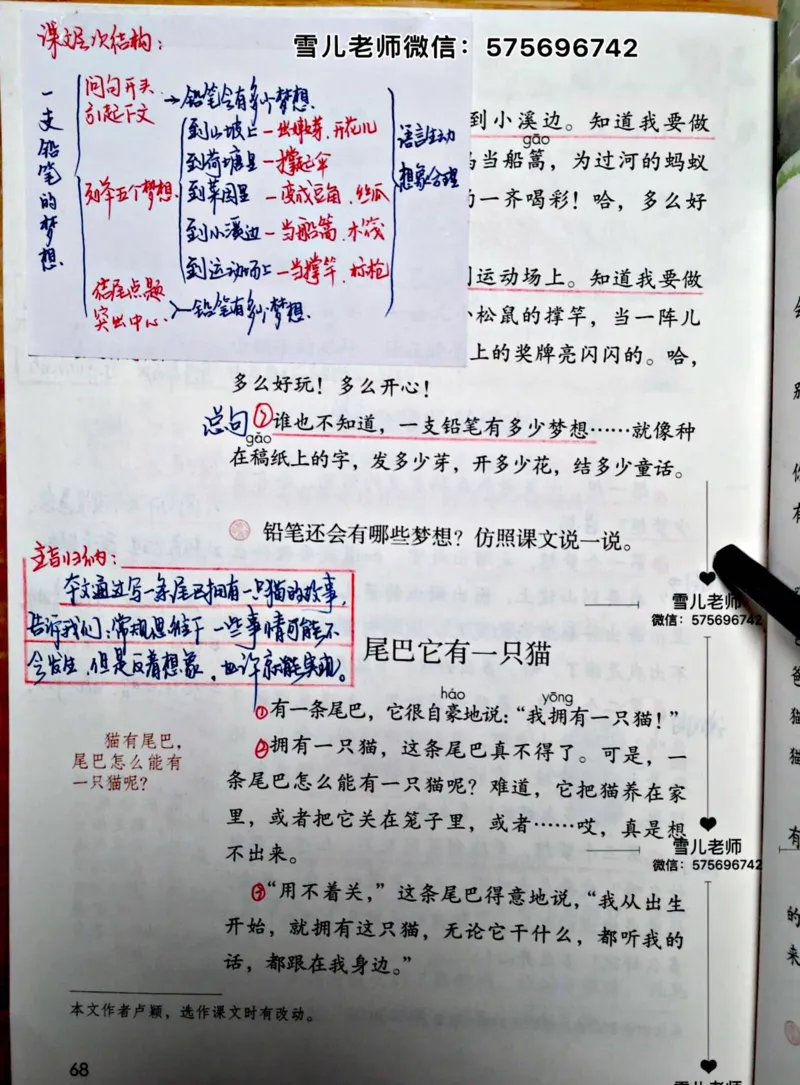 雪儿老师微信：575696742
课文层次结构：
一支铅笔的梦想
问句开头
引起下文
→铅笔有多少个梦想
列举五个梦想
到山坡上—出嫩芽、开花儿
到荷塘里—撑起伞
到菜园里—变成豆角、丝瓜
到小溪边—当船篙、木筏
到运动场上—当撑竿、标枪
结尾点题
突出中心
铅笔有多少梦想.
语言生动
想象合理
到小溪边。知道我要做
gāo
当船篙，为过河的蚂蚁
一齐喝彩！哈，多么好
运动场上。知道我要做
小松鼠的撑竿，当一阵儿
上的奖牌亮闪闪的。哈，
多么好玩！多么开心！
总句 ⑦谁也不知道，一支铅笔有多少梦想……就像种
gǎo
在稿纸上的字，发多少芽，开多少花，结多少童话。
铅笔还会有哪些梦想？仿照课文说一说。
主旨归纳：
本文通过写一条尾巴拥有一只猫的故事，
告诉我们：常规思维下一些事情可能不
会发生，但是反着想象，也许就能实现。
雪儿老师
微信：575696742
尾巴它有一只猫
háo yōng
①有一条尾巴，它很自豪地说：“我拥有一只猫！”
猫有尾巴，
尾巴怎么能有
一只猫呢？
②拥有一只猫，这条尾巴真不得了。可是，一
条尾巴怎么能有一只猫呢？难道，它把猫养在家
里，或者把它关在笼子里，或者……哎，真是想
不出来。
雪儿老师
微信：575696742
③“用不着关，”这条尾巴得意地说，“我从出生
开始，就拥有这只猫，无论它干什么，都听我的
话，都跟在我身边。”
本文作者卢颖，选作课文时有改动。
68